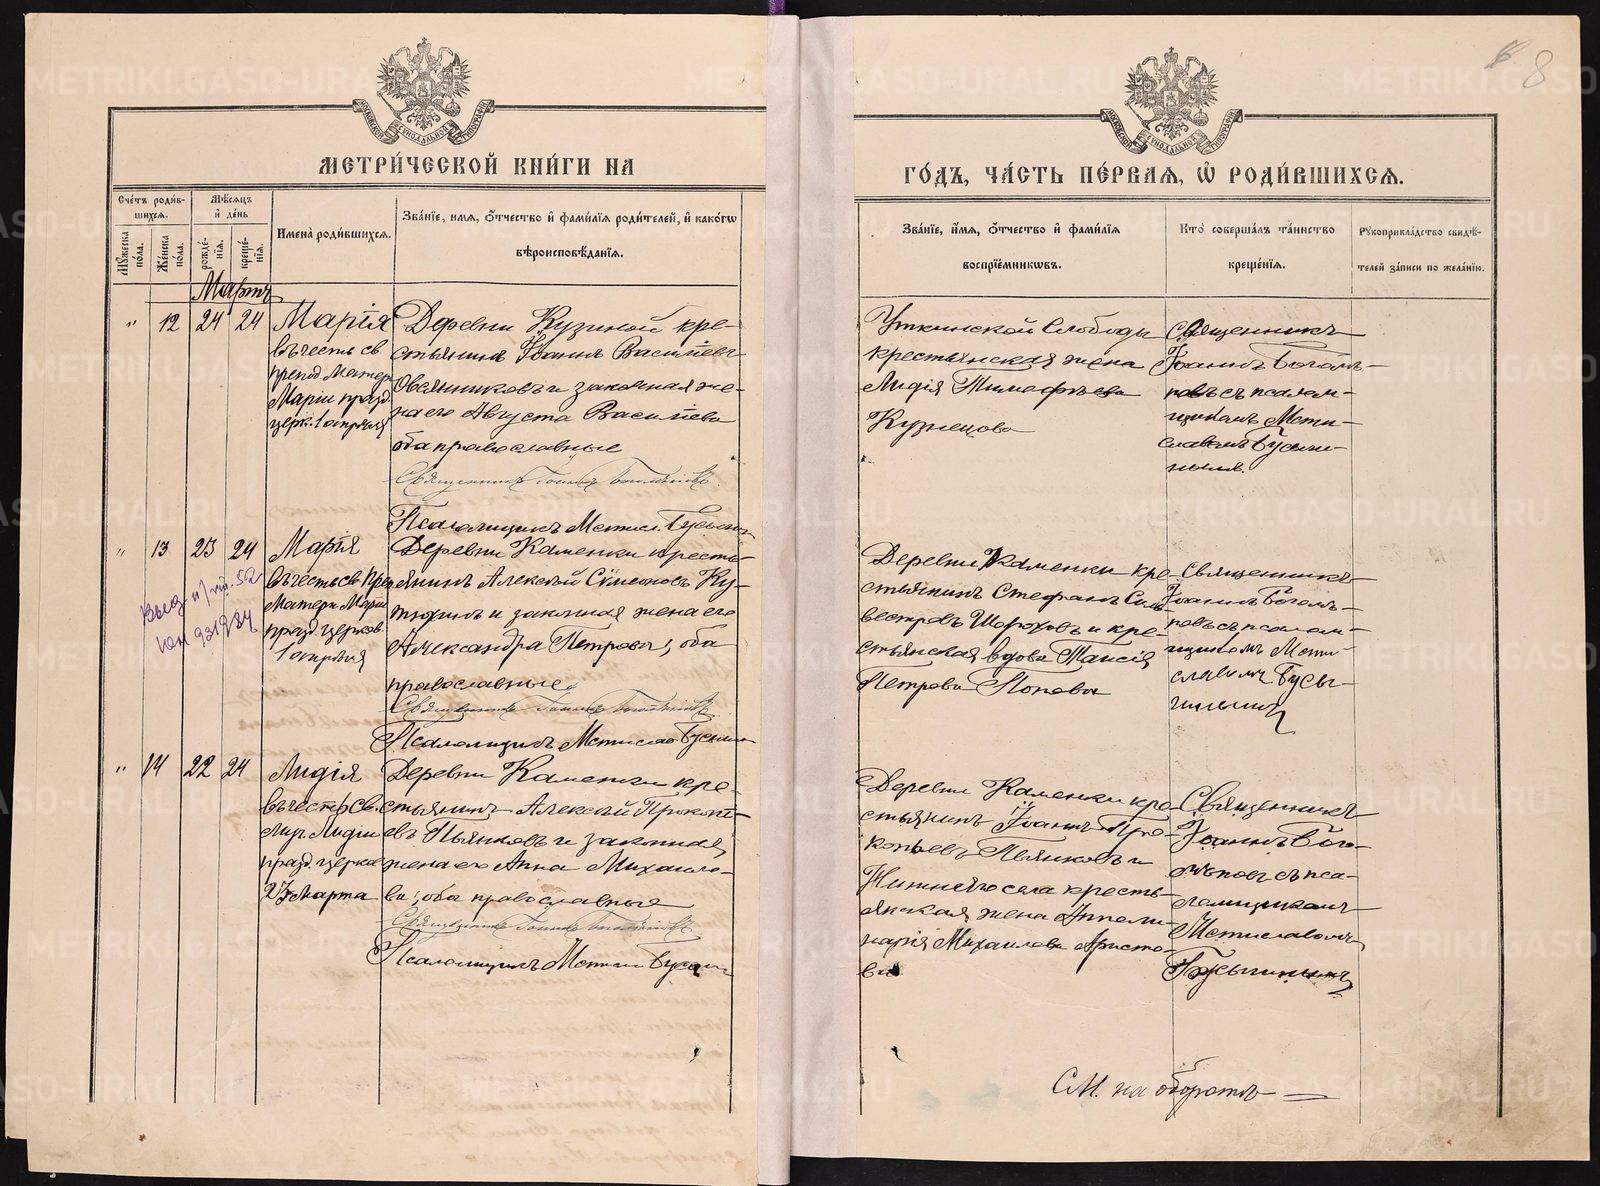 МЕТРИ́ЧЕСКОЙ КНИ́ГИ НА
ГО́ДЪ, ЧА́СТЬ ПЕ́РВАЯ, Ѽ РОДИ́ВШИХСЯ.
8
Сче́тъ роди́в-
шихся.
Мѣ́сяцъ
и҆ де́нь
Мꙋ́жеска по́ла.
Же́нска по́ла.
рожде́нїя.
креще́нїя.
И҆мена̀ роди́вшихся.
Зва́нїе, и҆мя, о҆́тчество и҆ фами́лїя роди́телей, и҆ како́гѡ
вѣроисповѣ́данїя.
Зва́нїе, и҆́мя, о҆́тчество и҆ фами́лїя
воспрїе́мникѡвъ.
Кто̀ соверша́лъ та́инство
креще́нїя.
Рꙋкоприкла́дство свидѣ́-
телей за́писи по жела́нїю.
Мартъ
" 12 24 24
Марія
въ честь св
препод. Матер
Маріи празд.
церк. 1 апрѣля
Деревни Кузиной кре-
стьянинъ Іоаннъ Васильевъ
Овсянниковъ и законная же-
на его Августа Васильева
оба православные
Священникъ Іоаннъ
Псаломщикъ Мстисл. Бусыгин
Уткинской Слободы
крестьянская жена
Лидія Тимофѣева
Кузнецова
Священникъ
Іоаннъ Богом-
ловъ съ псалом-
щикомъ Мсти-
славомъ Бусыги-
нымъ.
" 13 23 24
Марія
въ честь св. Пре
Матери Маріи
празд. церков
1 апрѣля
Деревни Каменки кресть-
янинъ Алексѣй Сѵмеоновъ Ку-
тюхинъ и законная жена его
Александра Петрова, оба
православные
Священникъ Іоаннъ
Псаломщикъ Мстислав Бусыгин
Деревни Каменки кре-
стьянинъ Стефанъ Силь-
вестровъ Шороховъ и кре-
стьянская вдова Таисія
Петрова Попова
Священникъ
Іоаннъ Богом-
ловъ съ псалом-
щикомъ Мсти-
славомъ Бусы-
гинымъ
" 14 22 24
Лидія
въ честь св.
муч. Лидіи
празд. церков
23 Марта
Деревни Каменки кре-
стьянинъ Алексѣй Прокопі-
евъ Пьянковъ и законная
жена его Анна Михаило-
ва, оба православные
Священникъ Іоаннъ
Псаломщикъ Мстисл Бусыгин
Деревни Каменки кре-
стьянинъ Іоаннъ Про-
копьевъ Пьянковъ и
Нижняго села кресть-
янская жена Аполли-
нарія Михаилова Аристо-
ва
Священникъ
Іоаннъ Бого-
мъловъ съ пса-
ломщикомъ
Мстиславомъ
Бусыгинымъ
См. на оборотѣ
METRIKI.GASO-URAL.RU